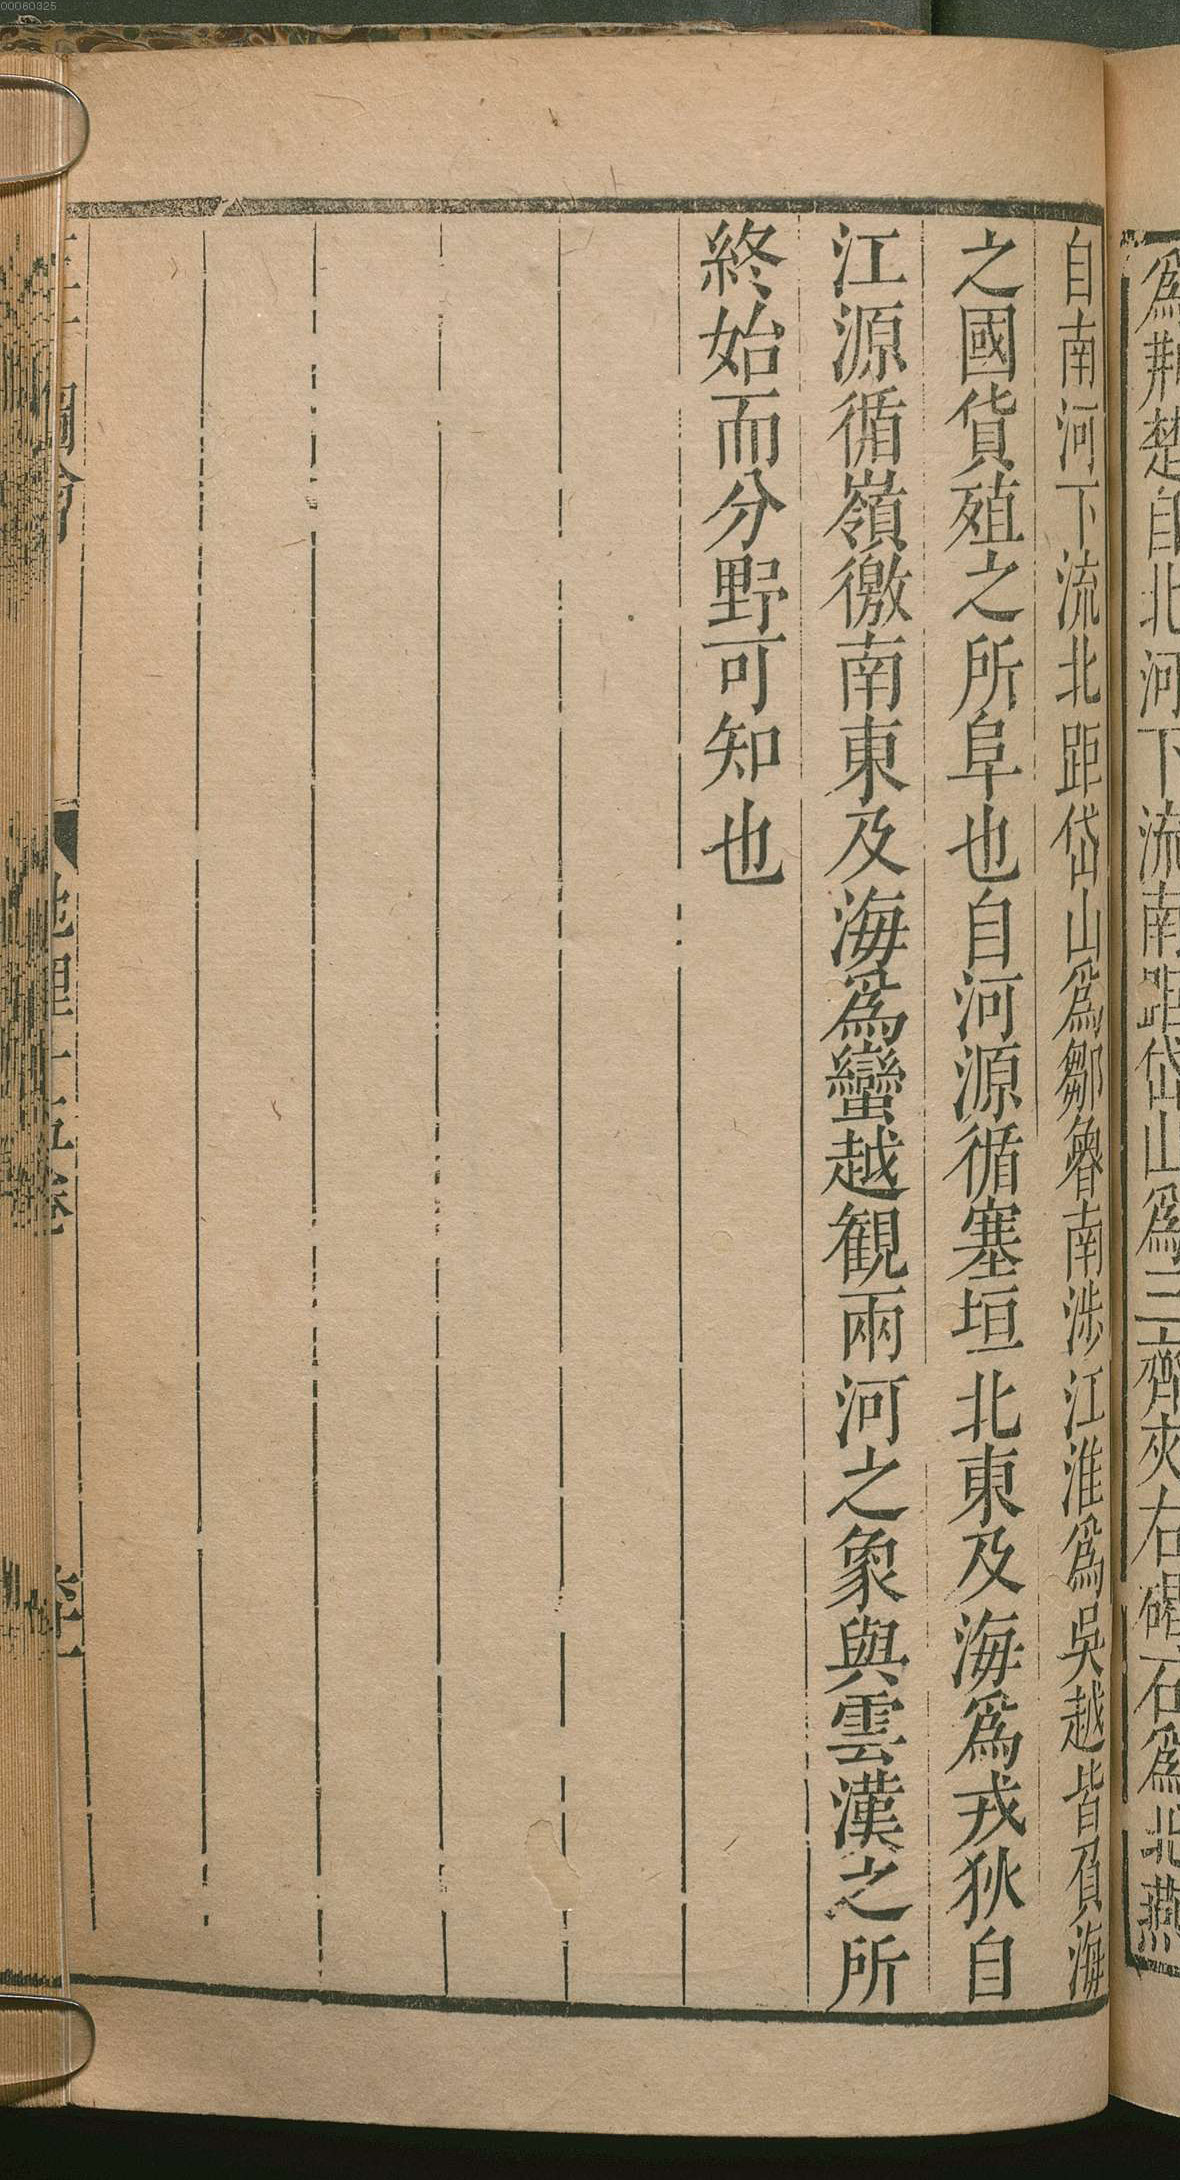 00060325
爲荆楚自北河下流南距岱山爲三齊夾右碣石爲北燕
自南河下流北距岱山爲鄒魯南涉江淮爲吳越皆負海
之國貨殖之所阜也自河源循塞垣北東及海爲戎狄自
江源循嶺徼南東及海爲蠻越観兩河之象與雲漢之所
終始而分野可知也
圖會
地理十五卷